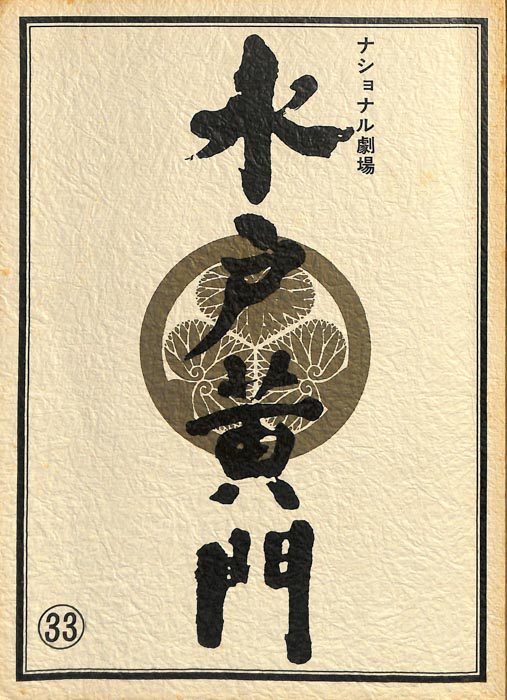 ナショナル劇場
水戸黄門
33